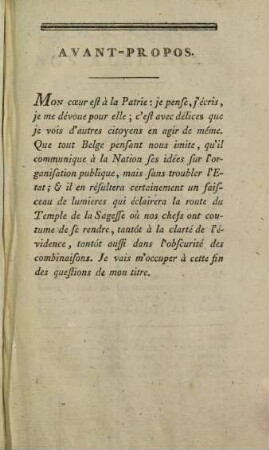 AVANT-PROPOS.
MON cœur eſt à la Patrie : je penſe, j'écris,
je me dévoue pour elle ; c'eſt avec délices que
je vois d'autres citoyens en agir de même.
Que tout Belge penſant nous imite, qu'il
communique à la Nation ſes idées ſur l'or-
ganiſation publique, mais ſans troubler l'E-
tat ; & il en réſultera certainement un faiſ-
ceau de lumieres qui éclairera la route du
Temple de la Sageſſe où nos chefs ont cou-
tume de ſe rendre, tantôt à la clarté de l'é-
vidence, tantôt auſſi dans l'obſcurité des
combinaiſons. Je vais m'occuper à cette fin
des queſtions de mon titre.